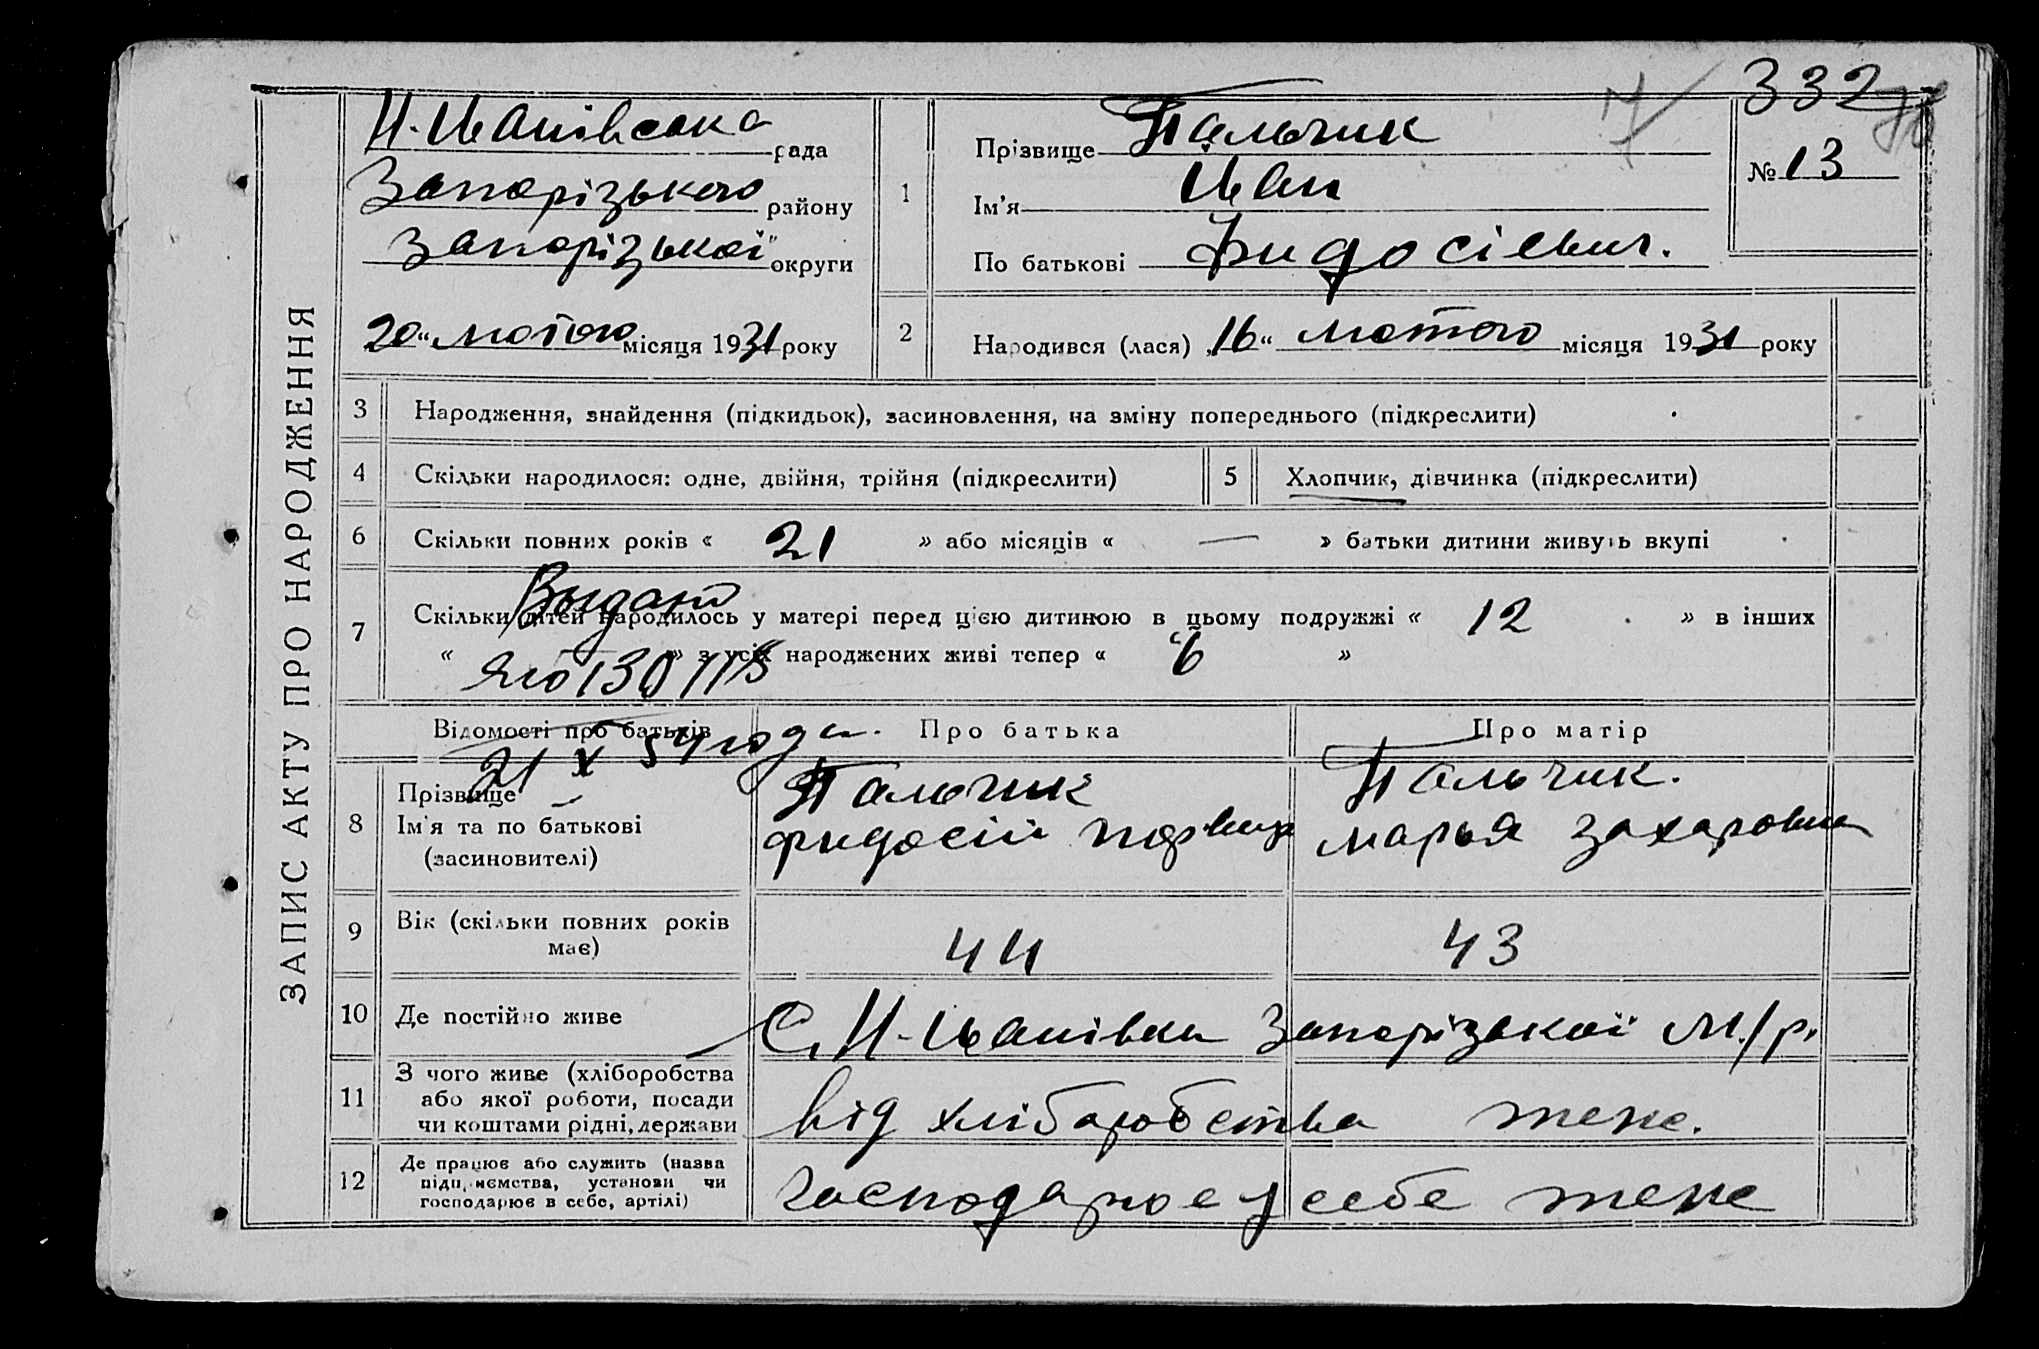 332
ЗАПИС АКТУ ПРО НАРОДЖЕННЯ
Н-Иванівська рада
Запорізького району
Запорізької округи
20 "лютого місяця 1931 року
1
Прізвище Пальчик
Ім'я Иван
По батькові Фидосіевич.
№ 13
2
Народився (лася) „16" лютого місяця 1931 року
3 Народження, знайдення (підкидьок), засиновлення, на зміну попереднього (підкреслити)
4 Скільки народилося: одне, двійня, трійня (підкреслити)
5 Хлопчик, дівчинка (підкреслити)
6 Скільки повних років « 21 » або місяців « — » батьки дитини живуть вкупі
7 Скільки дітей народилось у матері перед цією дитиною в цьому подружжі « 12 » в інших
« » з усіх народжених живі тепер « 6 »
21 X 54 года.
Відомості про батьків
Про батька
Про матір
8 Прізвище
Ім'я та по батькові
(засиновителі)
Пальчик
Фидосій
Пальчик.
Марья Захаровна
9 Вік (скільки повних років
має)
44
43
10 Де постійно живе
С. Н-Иванівка Запорізької М./р.
11 З чого живе (хліборобства
або якої роботи, посади
чи коштами рідні, держави
від хлібаробства теже.
12 Де працює або служить (назва
підприємства, установи чи
господарює в себе, артілі)
Господарює у себе теже